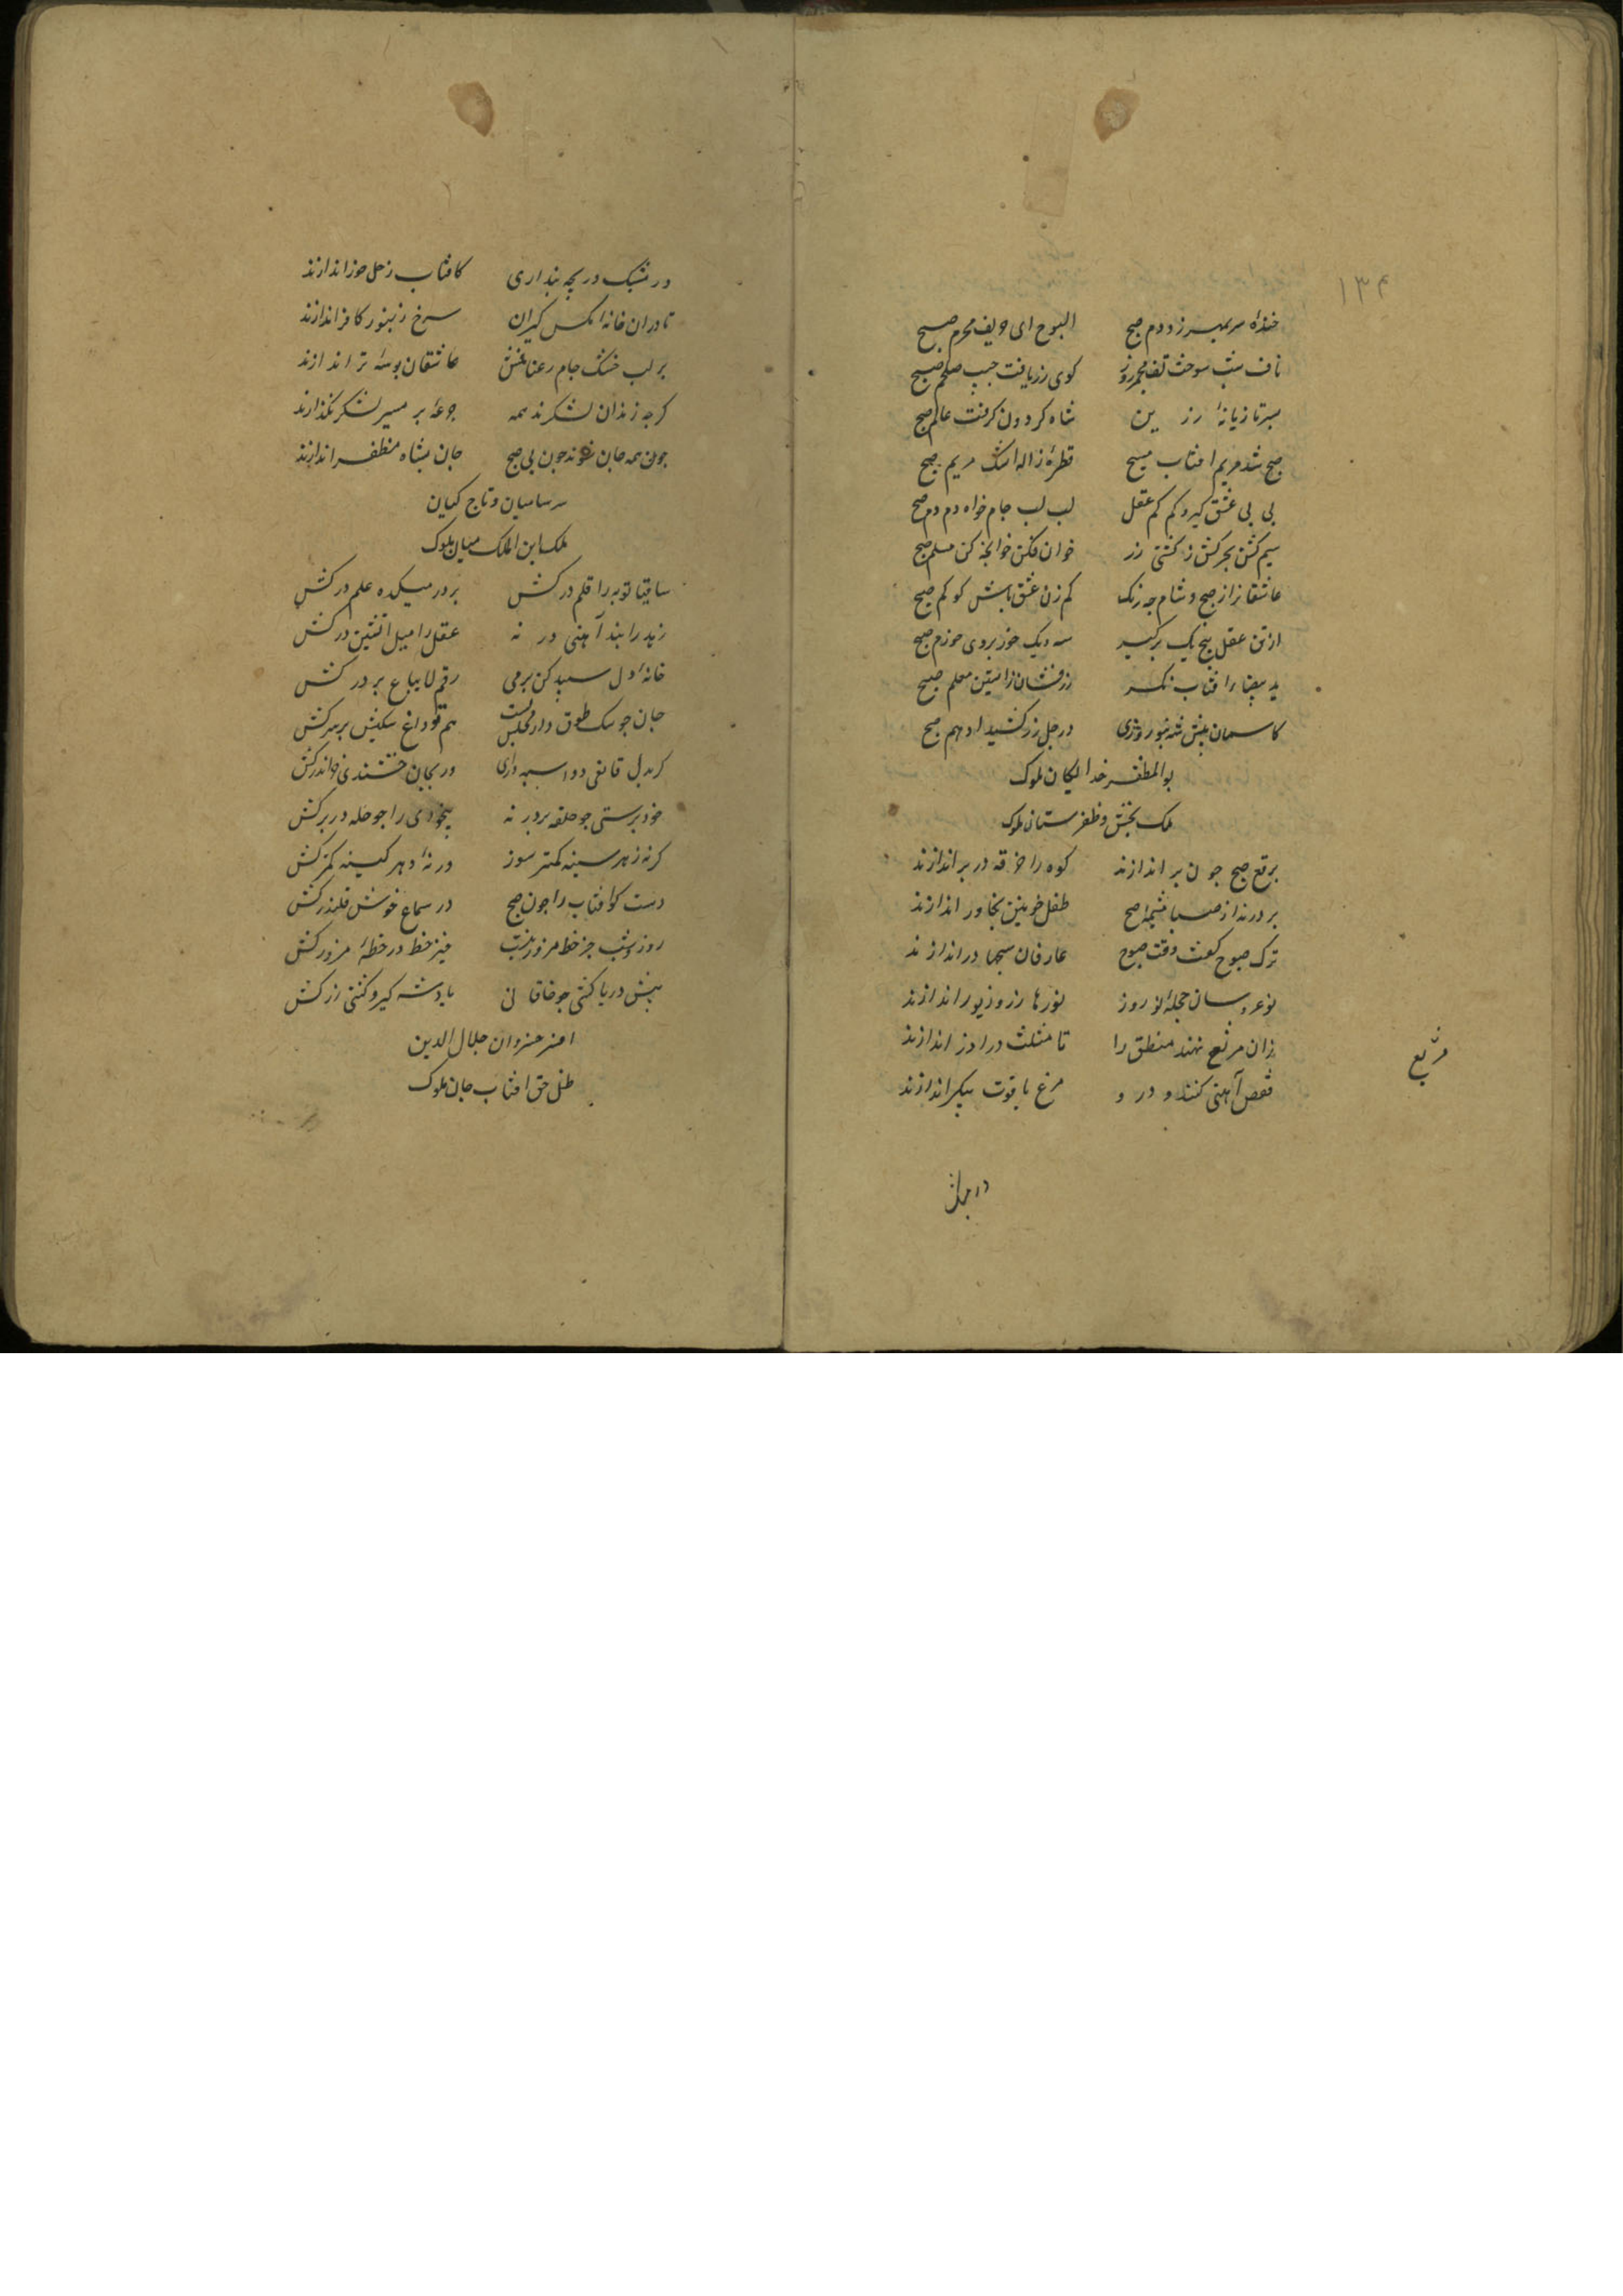 ۱۳۴
خنده سر بمهر زد دم صبح البوح ای حریف محرم صبح
ناف شب سوخت تف مجمر روز کوی زر یافت جیب ملحم صبح
بسر تازیانه زرین شاه کردون کرفت عالم صبح
صبح شد مریم افتاب مسیح قطره ژاله اشک مریم صبح
بی بی عشق کیر و کم کم عقل لب لب جام خواه دم دم صبح
سیم کش بحر کش ز کشتی زر خوان فکن خوانجه کن مسلم صبح
عاشقانرا از صبح و شام جه رنک کم زن عشق باش کو کم صبح
از تن عقل پنج یک برکیر سه و یک خور بروی خرم صبح
ید بیضاء افتاب نکر زر فشان ز استین معلم صبح
کاسمان پیش شه بنوروزی در جل زر کشید ادهم صبح
بوالمظفر خدایکان ملوک
ملک بخش و ظفر ستان ملوک
برقع صبح جون بر اندازند کوه را خرقه در بر اندازند
بردرند از صبا مشیمه صبح طفل خونین بخاور اندازند
ترک صبوح کفت وقت صبوح عارفان سبحها در اندازند
نوعروسان حجله نوروز نورها زر و زیور اندازند
زان مربع نهند منطق را تا مثلث درآذر اندازند
مربع
قفص آهنی کنند و درو مرغ یاقوت پیکر اندازند
در مشبک دریچه پنداری کافتاب زحل خور اندازند
تا در ان خانه مکس کیران سرخ زنبور کافر اندازند
بر لب خشک جام رعنافش عاشقان بوسه تر اندازند
کرجه زندان لشکرند همه جرعه بر میر لشکر اندازند
جون همه جان شوند جون بی صبح جان بشاه مظفر اندازند
سر سامیان و تاج کیان
ملک ابن الملک میان ملوک
ساقیا توبه را قلم درکش بر در میکده علم درکش
زهد را بند آهنی در نه عقل را میل اتشین درکش
خانه دل سبیل کن بر می رقم لایباع بر در کش
جان جو سک طوق دار مجلس تست هم تو داغ سکیش بر سر کش
کر بدل قانعی دو اسبه درای ور بجان خشندی خر اندر کش
خود پرستی جو حلقه بر در نه بیخودی را جو حله در بر کش
کرنه زهر سینه کمتر سوز ورنه دهر کینه کمتر کش
دست کو افتاب را جون صبح در سماع خوش قلندر کش
روز و شب جز خط مزور نیست خیز خط در خطه مزور کش
پیش دریا کشی جو خاقانی یاد شه کیر و کشتی زر کش
افسر خسروان جلال الدین
ظل حق افتاب جان ملوک